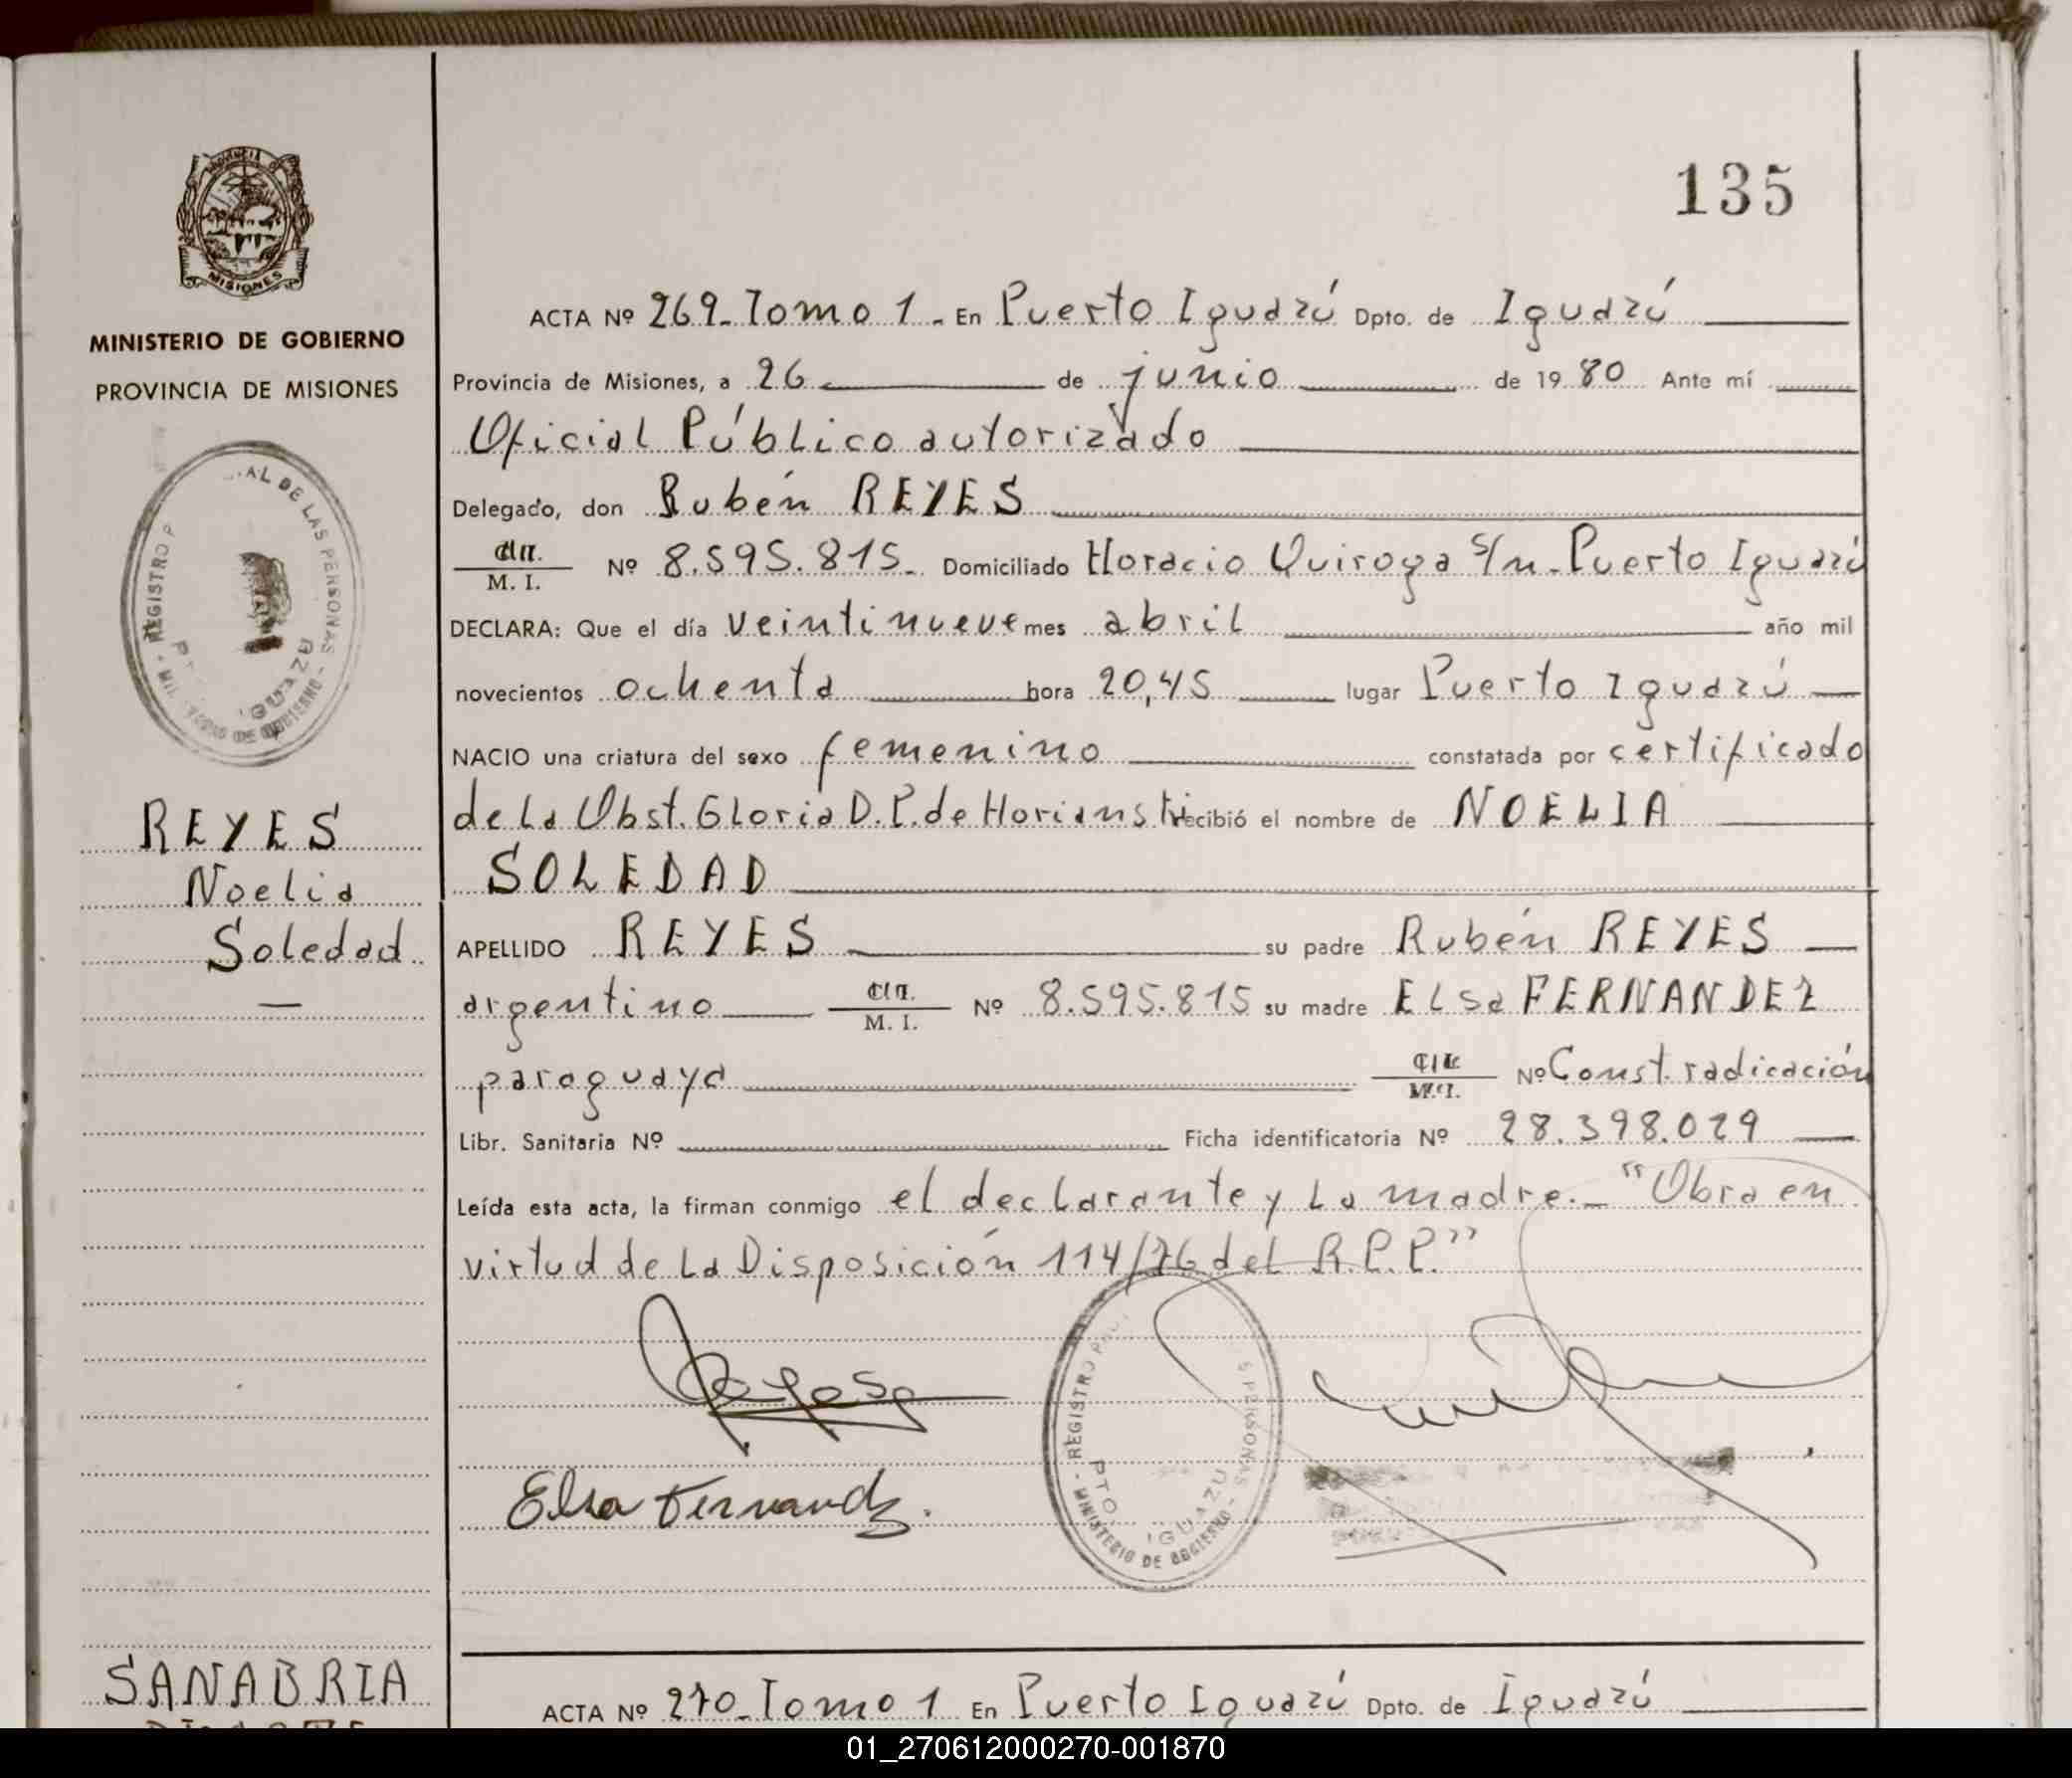 135
PROVINCIA
MISIONES
MINISTERIO DE GOBIERNO
PROVINCIA DE MISIONES
AL DE LAS PERSONAS - REGISTRO P
IGUAZU
DE GOBIERNO
REYES
Noelia
Soledad
—
ACTA Nº 269_Tomo 1_ En Puerto Iguazú Dpto. de Iguazú
Provincia de Misiones, a 26 de junio de 1980 Ante mí
Oficial Público autorizado
Delegado, don Rubén REYES
M. I. Nº 8.595.815_ Domiciliado Horacio Quiroga s/n_Puerto Iguazú
DECLARA: Que el día veintinueve mes abril año mil
novecientos ochenta hora 20,45 lugar Puerto Iguazú
NACIO una criatura del sexo femenino constatada por certificado
de la Obst. Gloria D.P. de recibió el nombre de NOELIA
SOLEDAD
APELLIDO REYES su padre Rubén REYES
argentino M. I. Nº 8.595.815 su madre Elsa FERNANDEZ
paraguaya M. I. Nº Const. radicación
Libr. Sanitaria Nº Ficha identificatoria Nº 28.398.029
Leída esta acta, la firman conmigo el declarante y la madre._ "Obra en
virtud de la Disposición 114/76 del R.P.P."
Elsa Fernandz.
REGISTRO
PERSONAS
PTO IGUAZU
MINISTERIO DE GOBIERNO
SANABRIA
ACTA Nº 270_Tomo 1 En Puerto Iguazú Dpto. de Iguazú
01_270612000270-001870